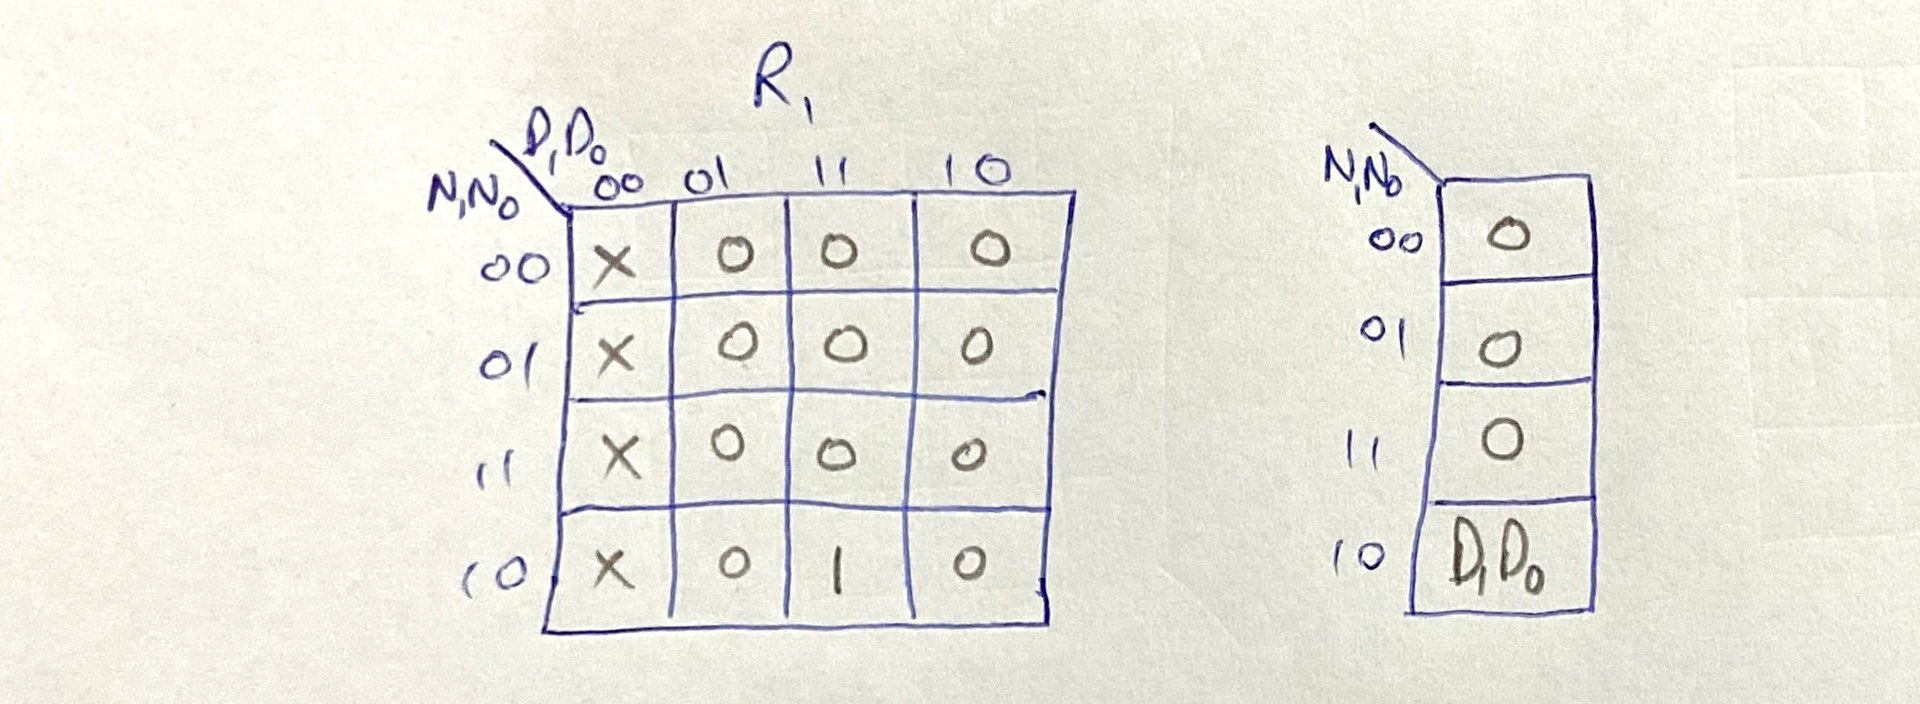 R₁
D₁D₀
N₁N₀ 00 01 11 10
00 X 0 0 0
01 X 0 0 0
11 X 0 0 0
10 X 0 1 0
N₁N₀
00 0
01 0
11 0
10 D₁D₀